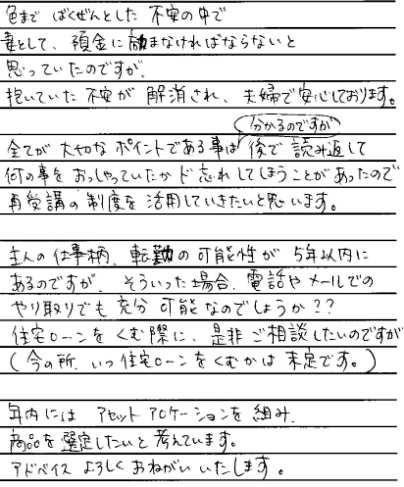 色まで ばくぜんとした 不安の中で
妻として、預金に励まなければならないと
思っていたのですが、
抱いていた不安が 解消され、夫婦で安心しております。
分かるのですが
全てが 大切な ポイントである事は 後で 読み返して
何の事を おっしゃっていたか ド忘れしてしまうことがあったので
再受講の制度を 活用していきたいと思います。
主人の仕事柄、転勤の可能性が 5年以内に
あるのですが、そういった場合、電話やメールでの
やり取りでも 充分 可能なのでしょうか??
住宅ローンをくむ際に、是非ご相談したいのですが
(今の所、いつ住宅ローンをくむかは 未定です。)
年内には アセットアロケーションを 組み、
商品を選定したいと考えています。
アドベイス よろしく おねがい いたします。